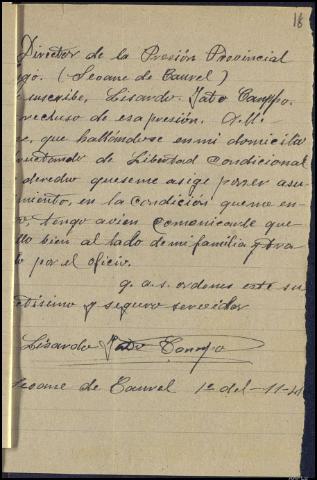 18
Director de la Presión Provincial
go. (Seoane de Caurel)
suscribe, Lisardo Jato Campo.
recluso de esa presión. A.Me
e, que hallándose en mi domicilio
de Libertad Condicional
derecho queseme asige por ser asu
miento, en la condición queme en
o, tengo avien comunicarle que
bien al lado de mi familia y tra
o por el oficio.
q. a. s. ordenes este su
tisimo y seguro servidor
Lisardo Jato Campo
Seoane de Caurel 1º del-11-41